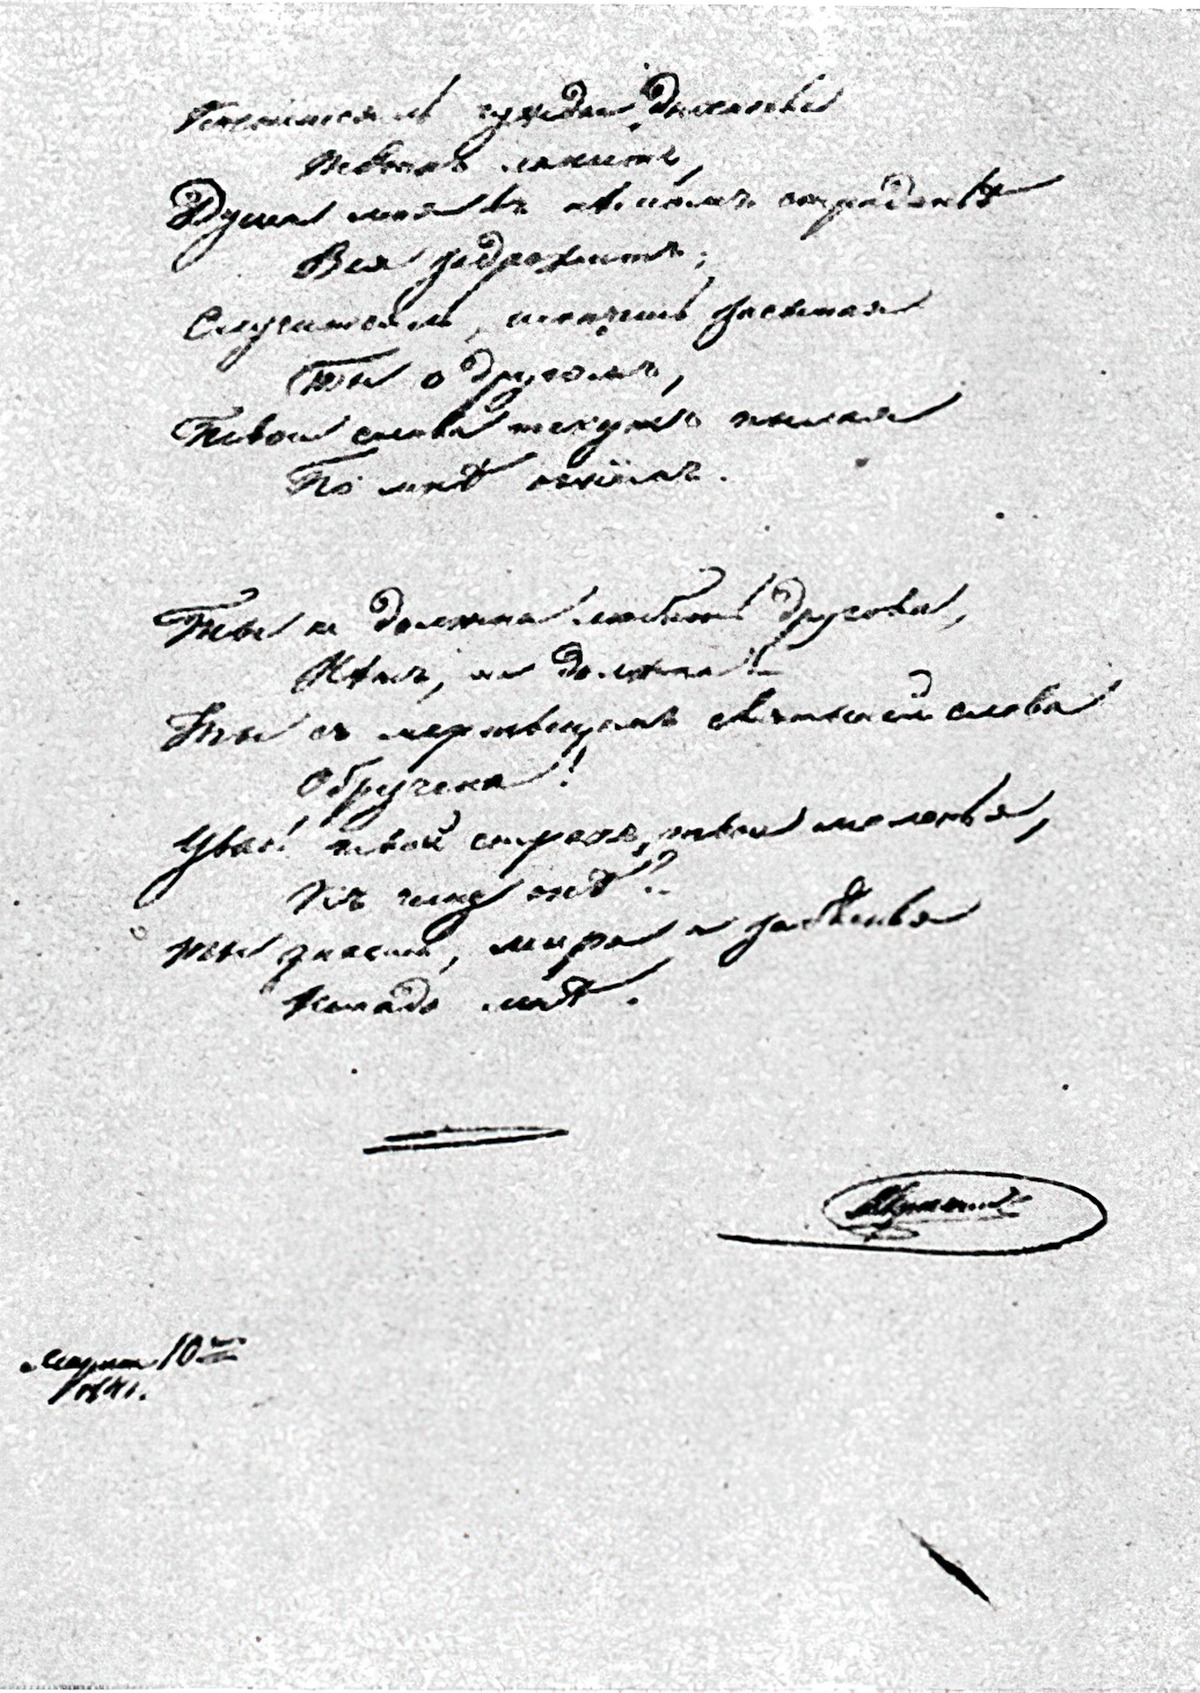 Коснится ль чуждое дыханье
Твоихъ ланитъ,
Душа моя въ нѣмомъ страданьѣ
Вся задрожитъ;
Случится ль, шепчешь засыпая
Ты о другомъ,
Твои слова текутъ пылая
По мнѣ огнёмъ.
Ты не должна любить другова,
Нѣтъ, не должна!
Ты съ мертвецомъ святыней слова
Обручена!
Увы! твой страхъ, твои моленья,
Къ чему онѣ?
ты знаешь, мира и забвенья
Ненадо мнѣ.
Марта 10го
1841.